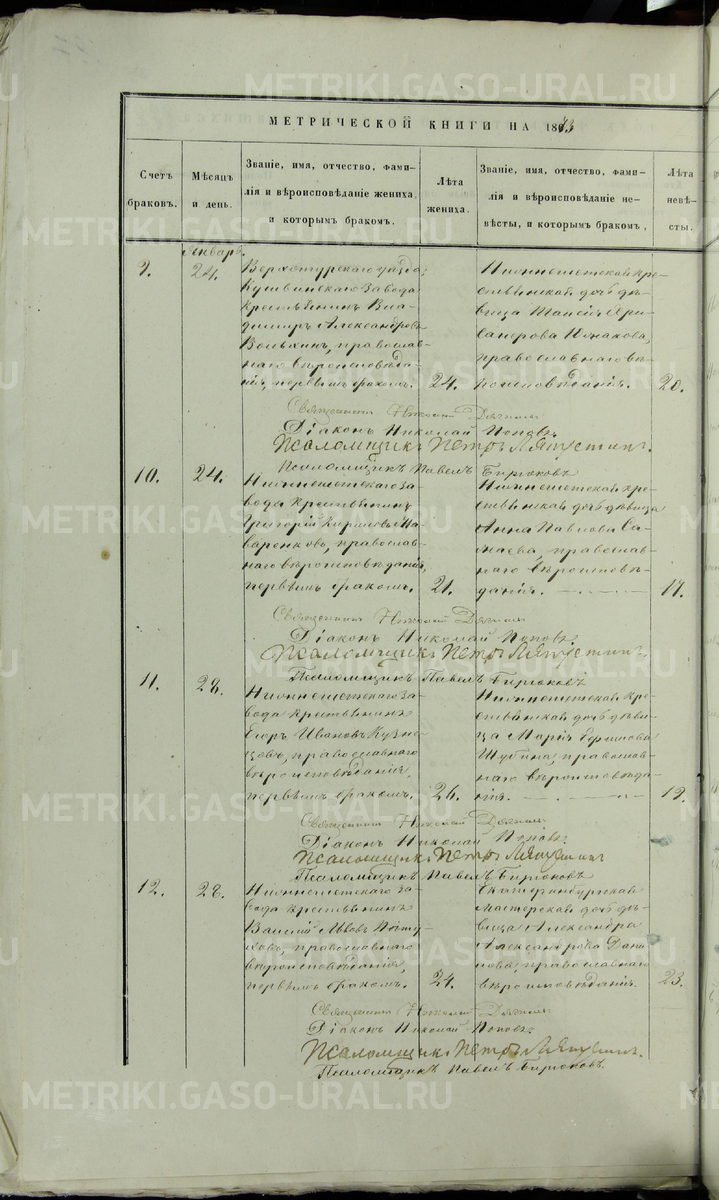 МЕТРИЧЕСКОЙ КНИГИ НА 1883
Счетъ браковъ.
Мѣсяцъ и день.
Званіе, имя, отчество, фами-
лія и вѣроисповѣданіе жениха,
и которымъ бракомъ.
Лѣта жениха.
Званіе, имя, отчество, фами-
лія и вѣроисповѣданіе не-
вѣсты, и которымъ бракомъ,
Лѣта невѣ-
сты.
Январь.
9.
24.
Верхотурскаго уѣзда,
Кушвинскаго завода
крестьянинъ Вла-
димиръ Александровъ
православ-
наго вѣроисповѣда-
нія, первымъ бракомъ.
24.
Нижнеисетская кре-
стьянская дочь дѣ-
вица
православнаго вѣ-
роисповѣданія.
20.
Священникъ Николай
Діаконъ Николай Поповъ.
Псаломщикъ Петръ
Псаломщикъ Павелъ Бирюковъ
10.
24.
Нижнеисетскаго за-
вода крестьянинъ
Григорій
православ-
наго вѣроисповѣданія,
первымъ бракомъ.
21.
Нижнеисетская кре-
стьянская дочь дѣвица
Анна Павлова
православ-
наго вѣроисповѣ-
данія.
17.
Священникъ Николай
Діаконъ Николай Поповъ.
Псаломщикъ Петръ
Псаломщикъ Павелъ Бирюковъ
11.
28.
Нижнеисетскаго за-
вода крестьянинъ
Егоръ Ивановъ Кузне-
цовъ, православнаго
вѣроисповѣданія,
первымъ бракомъ.
26.
Нижнеисетская кре-
стьянская дочь дѣви-
ца Марія
православ-
наго вѣроисповѣда-
нія.
19.
Священникъ Николай
Діаконъ Николай Поповъ.
Псаломщикъ Петръ
Псаломщикъ Павелъ Бирюковъ
12.
28.
Нижнеисетскаго за-
вода крестьянинъ
Василій Львовъ
православнаго
вѣроисповѣданія,
первымъ бракомъ.
24.
Екатеринбургская
мастерская дочь дѣ-
вица Александра
Александрова Дани-
лова, православнаго
вѣроисповѣданія.
23.
Священникъ Николай
Діаконъ Николай Поповъ.
Псаломщикъ Петръ
Псаломщикъ Павелъ Бирюковъ.
METRIKI.GASO-URAL.RU